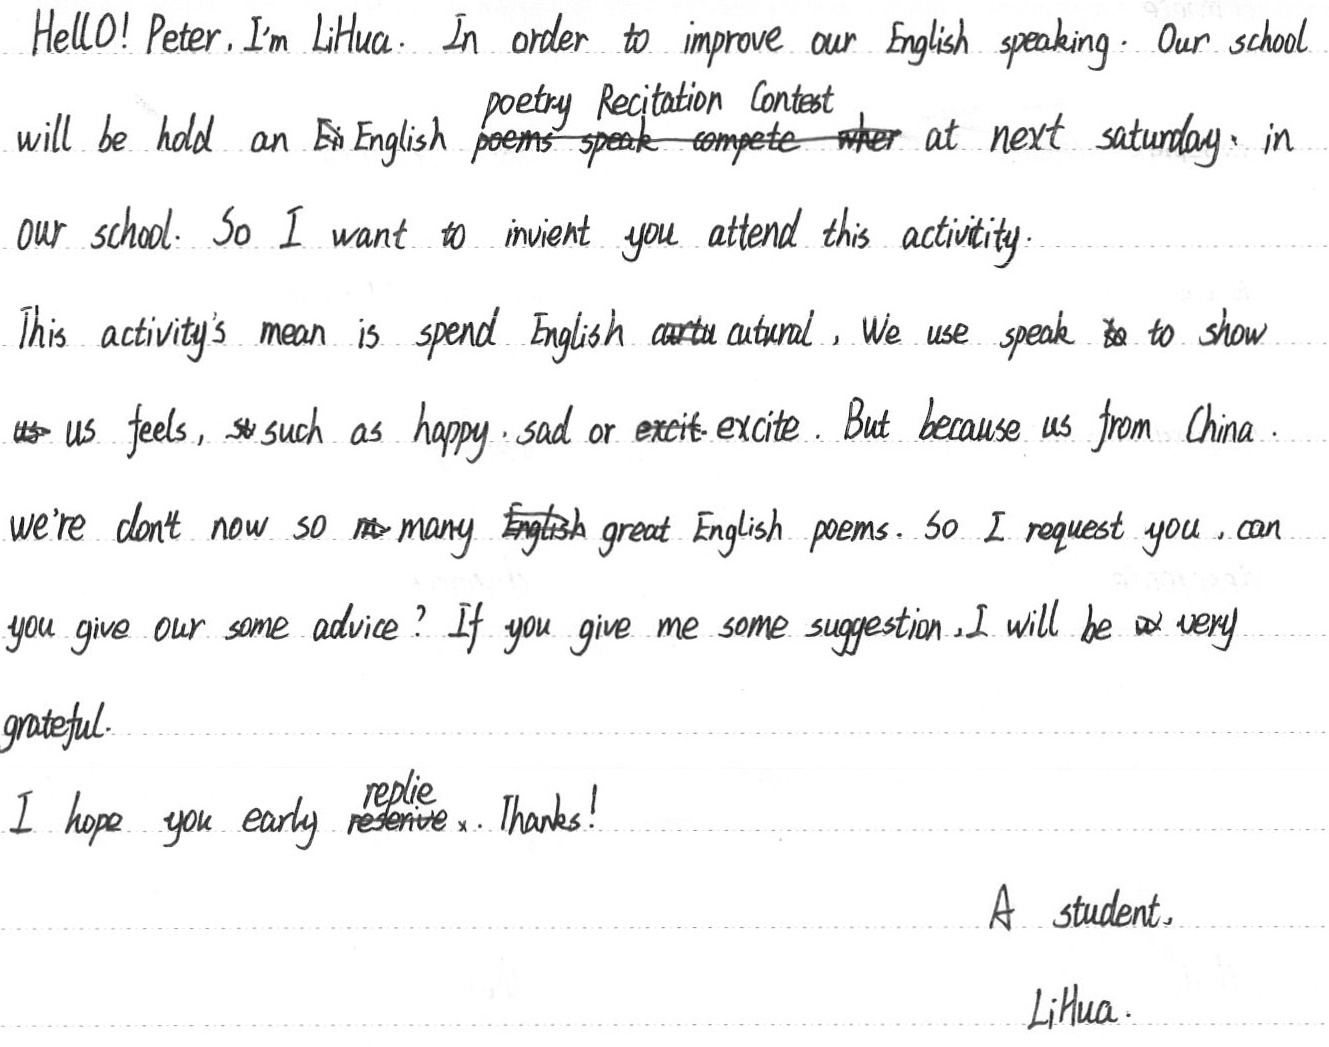 HellO! Peter, I'm LiHua. In order to improve our English speaking. Our school
will be hold an English poetry Recitation Contest at next saturday. in
our school. So I want to invient you attend this activitity.
This activity's mean is spend English cutural, We use speak to show
us feels, such as happy. sad or excite. But because us from China.
we're don't now so many great English poems. So I request you, can
you give our some advice? If you give me some suggestion, I will be very
grateful.
I hope you early replie. Thanks!
A student,
LiHua.